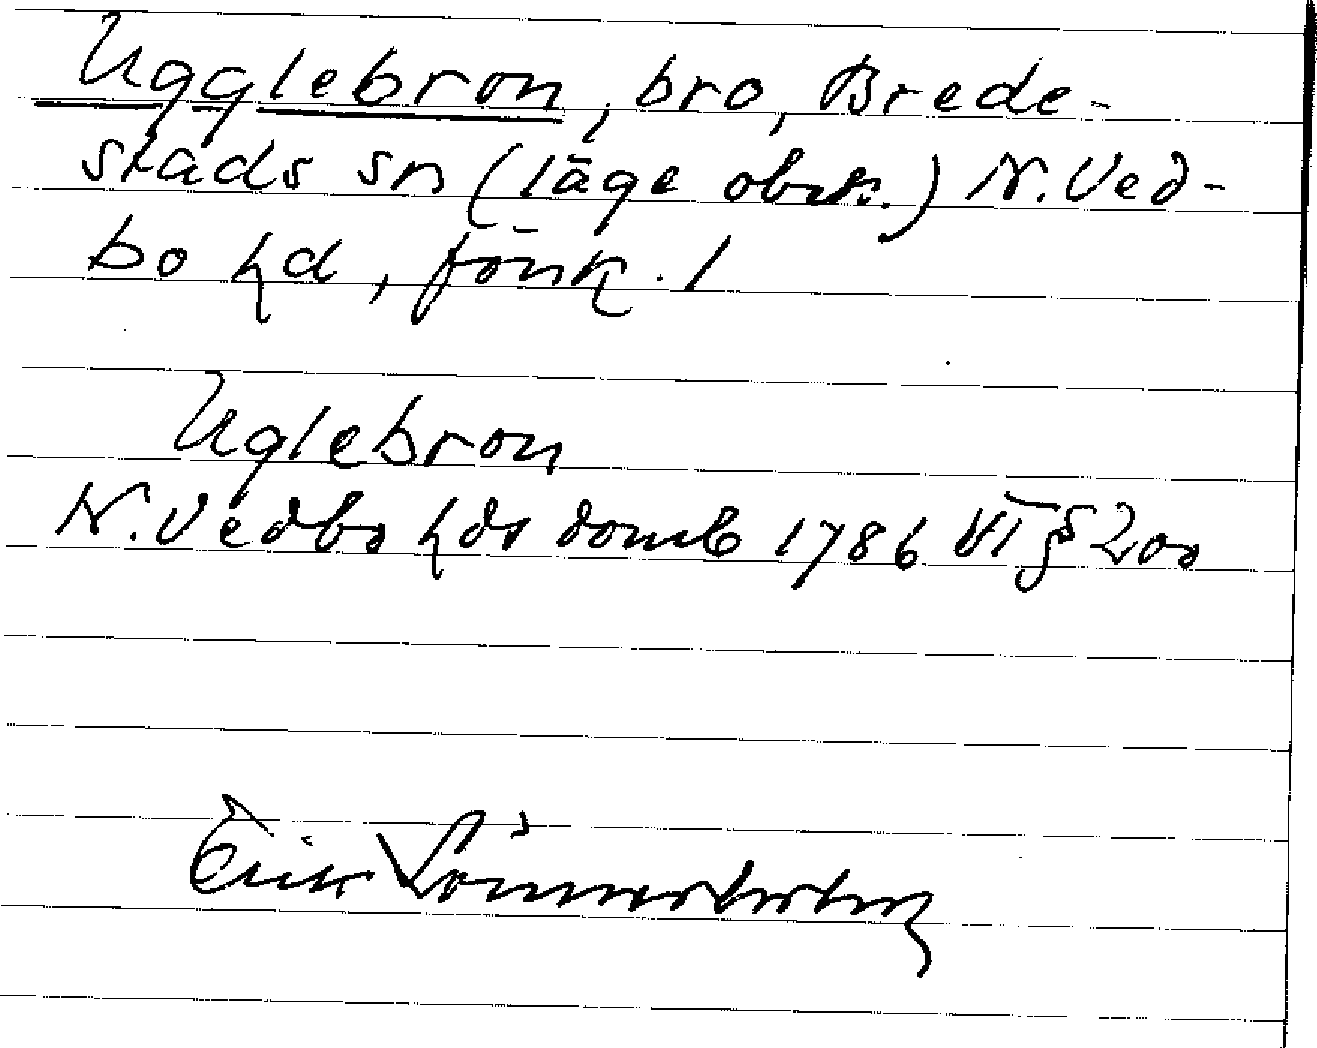 Ugglebron, bro, Brede-
stads sn (läge obek.) N. Ved-
bo hd, Jönk. l
Uglebron
N. Vedbo hds domb 1786 VI § 200
Erik